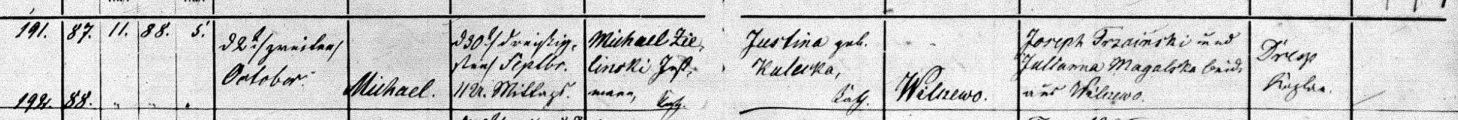 191. 87. 11. 88. 5.
d 2t /zweiten/
October.
Michael.
d 30t / dreißig-
sten/ Septbr.
11 U. Mittags.
Michael Zie-
linski Inst-
mann, Kath.
Justina geb.
Kuleska,
Kath.
Wilzewo.
Joseph Trzcinski und
Julianna Magalska beide
aus Wilzewo.
Kaplan.
192. 88. " " "